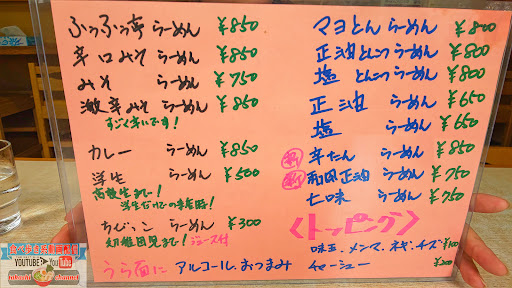 ふうふう亭 らーめん ¥850
辛口みそ らーめん ¥850
みそ らーめん ¥750
激辛みそ らーめん ¥850
すごく辛いです!
カレー らーめん ¥850
学生 らーめん ¥500
高校生まで!
ちびっこ らーめん ¥300
幼稚園児まで! ジュース付
うら面に アルコール、おつまみ
マヨとん らーめん ¥800
正油とんこつ らーめん ¥800
塩 とんこつ らーめん ¥800
正油 らーめん ¥650
塩 らーめん ¥650
新 辛たん らーめん ¥850
新 和風正油 らーめん ¥750
七味 らーめん ¥750
<トッピング>
味玉、メンマ、ネギ、チーズ ¥100
チャーシュー ¥200
YOUTUBE YouTube